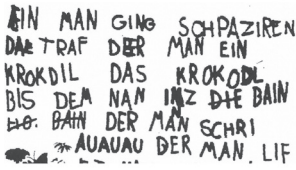 EIN MAN GING SCHPAZIREN
DAE TRAF DER MAN EIN
KROKDIL DAS KROKODL
BIS DEM NAN INZ DIE BAIN
BAIN DER MAN SCHRI
AUAUAU DER MAN LIF